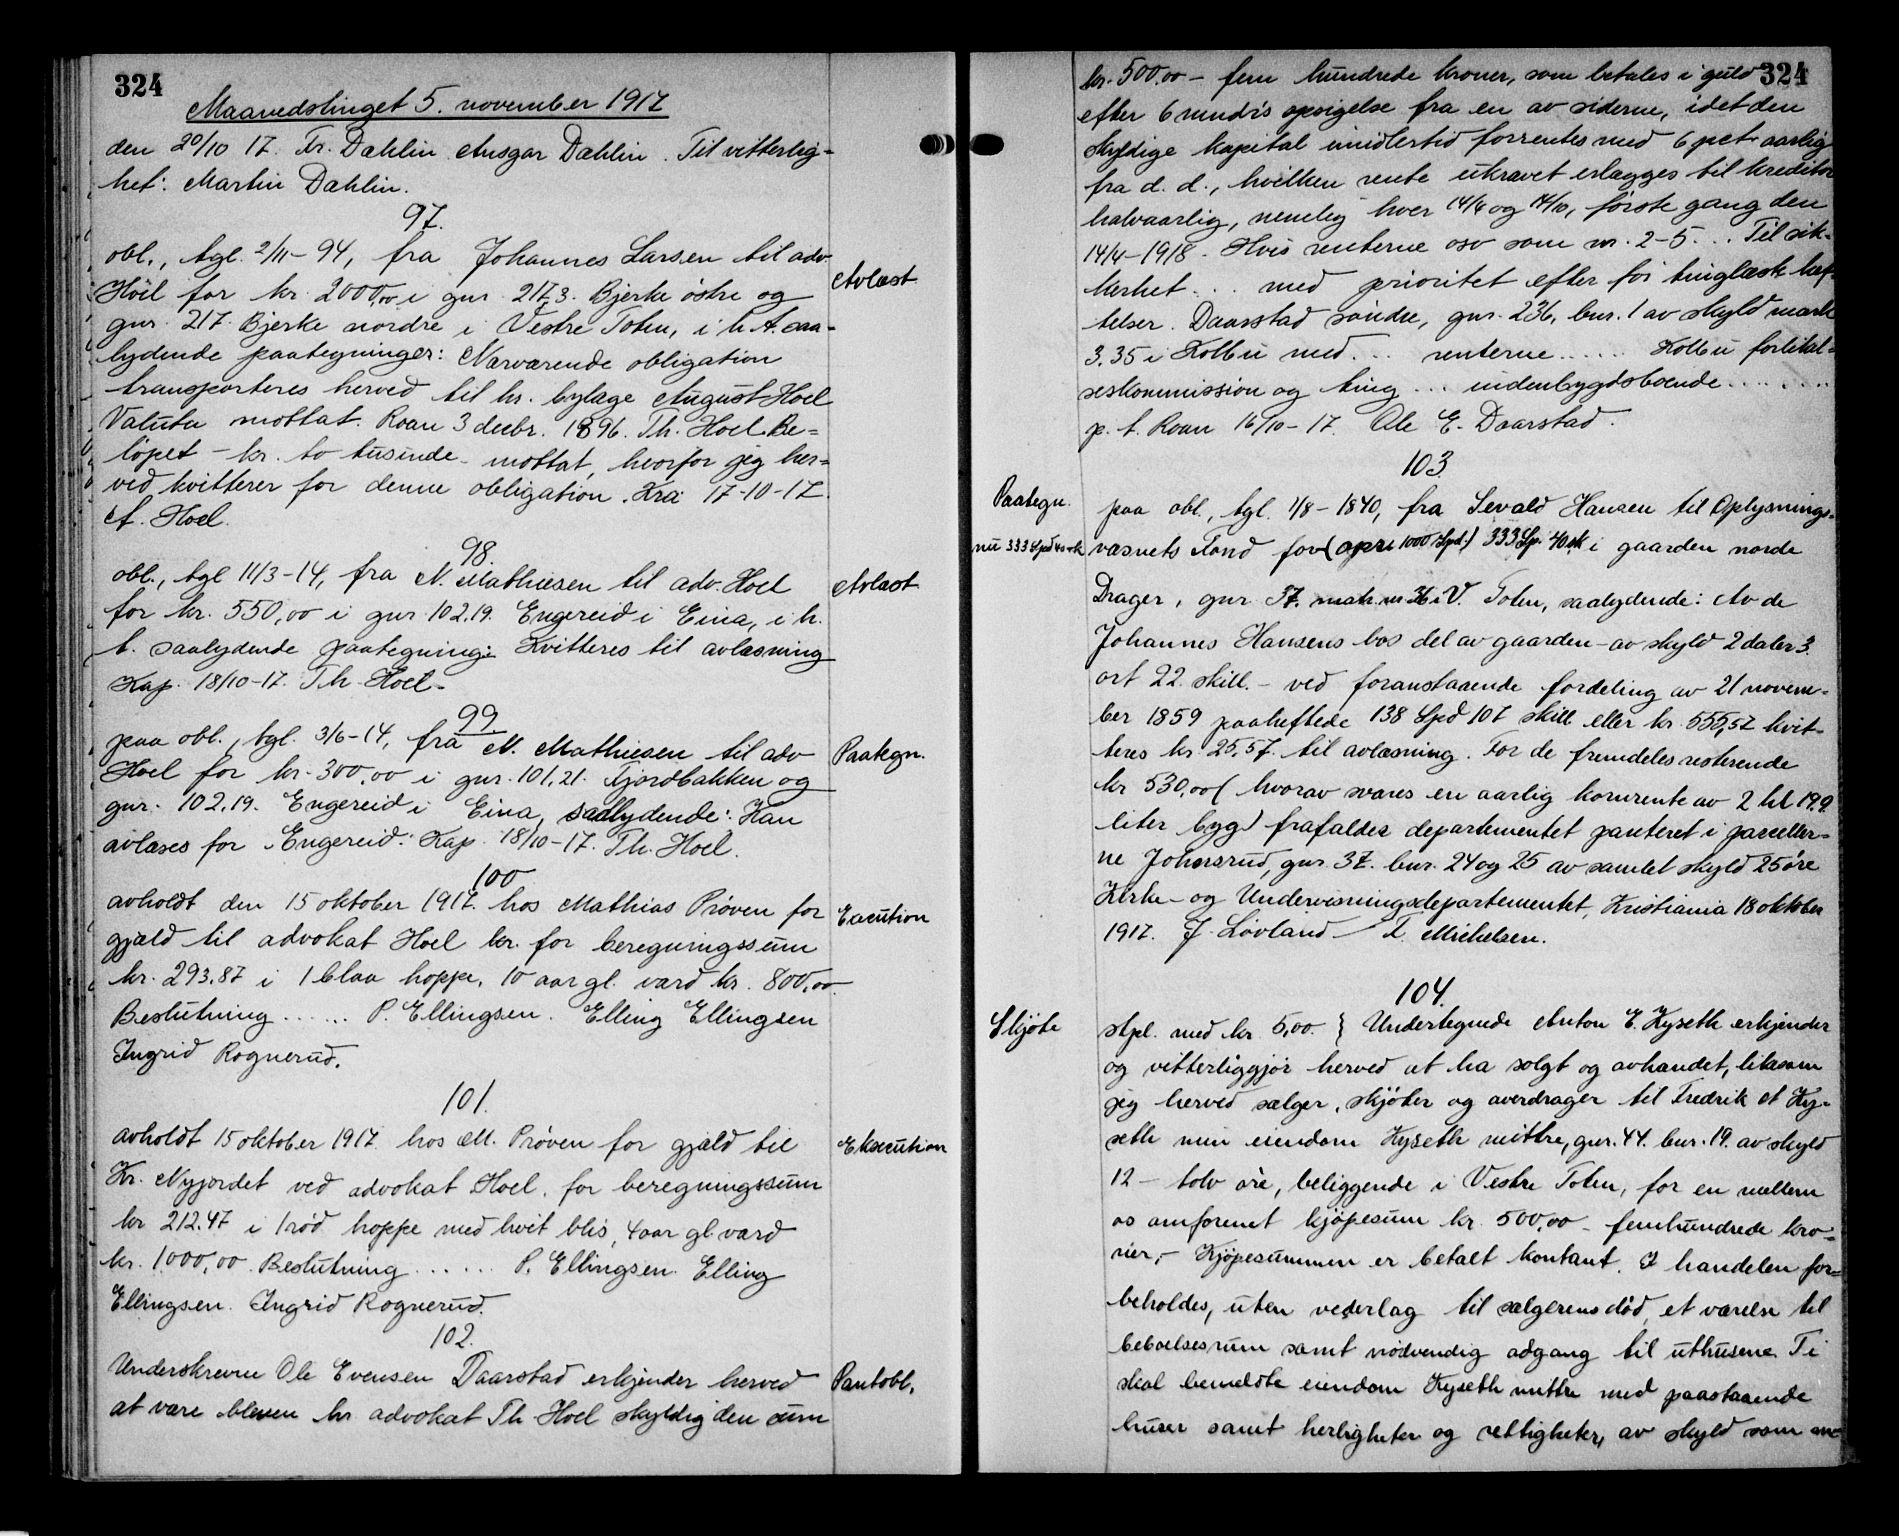 324
Maanedstinget 5. november 1917
den 20/10 17. Fr. Dahlin Ansgar Dahlin. Til vitterlig=
het: Martin Dahlin.
97.
obl., tgl. 2/11-94, fra Johannes Larsen til adv.
Avlæst
Höil for kr. 2000,00 i gnr. 217,3. Bjerke östre og
gnr. 217. Bjerke nordre i Vestre Toten, i h. t. saa=
lydende paategninger: Nærværende obligation
transporteres herved til hr. bylæge August Hoel
Valuta mottat. Roan 3 decbr. 1896. Th. Hoel. Be=
löpet - kr. to tusinde - mottat, hvorfor jeg her=
ved kvitterer for denne obligation. Kra 17-10-17.
A. Hoel.
98.
obl., tgl 11/3-14, fra N. Mathiesen til adv. Hoel
Avlæst
for kr. 550,00 i gnr 102,19. Engereid i Eina, i h.
t. saalydende paategning: Kvitteres til avlæsning
Kap. 18/10-17. Th. Hoel.
99
paa obl., tgl. 3/6-14, fra N. Mathiesen til adv
Paategn.
Hoel for kr. 300,00 i gnr. 101,21. Fjordbakken og
gnr. 102,19. Engereid i Eina, saalydende: Kan
avlæses for Engereid. Kap. 18/10-17. Th. Hoel.
100
avholdt den 15 oktober 1917. hos Mathias Pröven for
Execution
gjæld til advokat Hoel kr. for beregningssum
kr. 293,87 i 1 blaa hoppe, 10 aar gl. værd kr. 800,00.
Beslutning ...... P. Ellingsen. Elling Ellingsen
Ingrid Rognerud.
101.
avholdt 15 oktober 1917 hos M. Pröven for gjæld til
Eksecution
Kr. Nyjordet ved advokat Hoel, for beregningssum
kr 212,47 i 1 röd hoppe med hvit blis, 4 aar gl værd
kr. 1000,00. Beslutning ...... P. Ellingsen. Elling
Ellingsen. Ingrid Rognerud.
102.
Underskrevne Ole Evensen Daarstad erkjender herved
Pantobl.
at være bleven hr advokat Th. Hoel skyldig den sum
324
kr. 500,00 - fem hundrede kroner, som betales i guld
efter 6 mndrs opsigelse fra en av siderne, idet den
skyldige kapital imidlertid forrentes med 6 pct. aarlig
fra d. d., hvilken rente ukrævet erlægges til kreditor
halvaarlig, nemlig hver 14/4 og 14/10, förste gang den
14/4-1918. Hvis renterne osv som nr. 2-5... Til sik-
kerhet... med prioritet efter för tinglæste hef-
telser. Daarstad söndre, gnr. 236, bnr. 1 av skyld mark
3.35 i Kolbu med... renterne...... Kolbu forliksk=
seskommission og ting... indenbygdsboende........
p. t. Roan 16/10-17. Ole E. Daarstad.
103
Paategn.
paa obl., tgl. 1/8-1840, fra Sevald Hansen til Oplysnings-
nu 333 Spd 40 sk
væsnets Fond for (opr. 1000 Spd.) 333 Sp. 40 sk i gaarden nordre
Drager, gnr 37. matr. nr 36 i V. Toten, saalydende: Av de
Johannes Hansens bos del av gaarden - av skyld 2 daler 3.
ort 22. skill. - ved foranstaaende fordeling av 21 novem-
ber 1859 paaheftede 138 Spd 107 skill eller kr. 555,57 kvit-
teres kr. 25,57. til avlæsning. For de fremdeles resterende
kr 530,00 (hvorav svares en aarlig kornrente av 2 hl 19,9
liter byg) frafalder departementet panteret i parceller-
ne Johansrud, gnr. 37. bnr. 24 og 25 av samlet skyld 25 öre
Kirke- og Undervisningsdepartementet, Kristiania 18 oktober
1917. J. Lövland / T. Michelsen.
104.
Skjöte
stpl. med kr. 5,00. } Undertegnede Anton E. Kyseth erkjender
og vitterliggjör herved at ha solgt og avhændet, likesom
jeg herved sælger, skjöter og averdrager til Fredrik A Ky-
seth min eiendom Kyseth mittre, gnr. 44. bnr. 19. av skyld
12 - tolv öre, beliggende i Vestre Toten, for en mellem
os omforenet kjöpesum kr. 500,00 - femhundrede kro-
ner,- Kjöpesummen er betalt kontant. I handelen for=
beholdes, uten vederlag til sælgerens död et værelse til
beboelsesrum samt nödvendig adgang til uthusene. Ti
skal bemeldte eiendom Kyseth mittre med paastaaende
huser samt herligheter og rettigheter, av skyld som